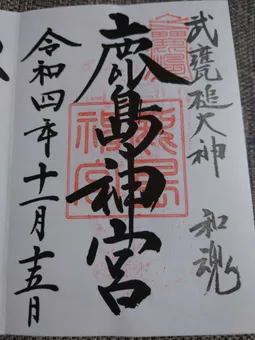 武甕槌大神 和魂
鹿島神宮
令和四年十一月十五日